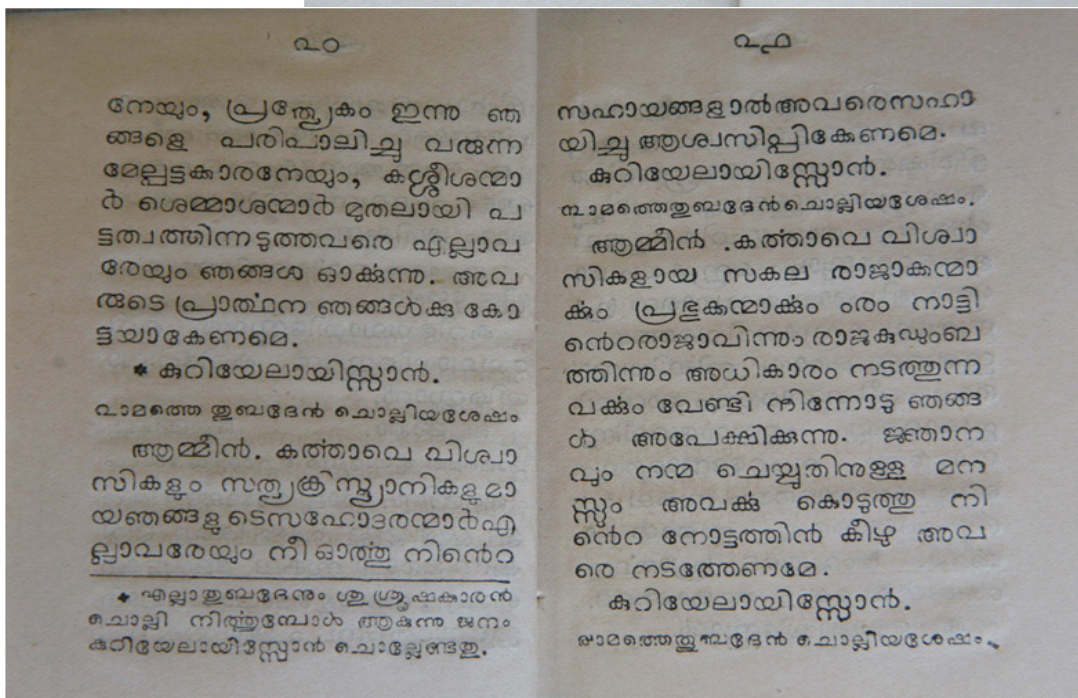 ൨൦
നേയും, പ്രത്യേകം ഇന്നു ഞ
ങ്ങളെ പരിപാലിച്ചു വരുന്ന
മേല്പട്ടക്കാരനേയും, കശ്ശീശന്മാ
ർ ശെമ്മാശന്മാർ മുതലായി പ
ട്ടത്വത്തിന്നടുത്തവരെ എല്ലാവ
രേയും ഞങ്ങൾ ഓൎക്കുന്നു. അവ
രുടെ പ്രാൎത്ഥന ഞങ്ങൾക്കു കോ
ട്ടയാകേണമെ.
* കുറിയേലായിസ്സോൻ.
൩ാമത്തെ തുബ്ദേൻ ചൊല്ലിയശേഷം
ആമ്മീൻ. കൎത്താവെ വിശ്വാ
സികളും സത്യക്രിസ്ത്യാനികളുമാ
യഞങ്ങളുടെസഹോദരന്മാർഎ
ല്ലാവരേയും നീ ഓൎത്തു നിൻെറ
* എല്ലാതുബ്ദേനും ശുശ്രൂഷകാരൻ
ചൊല്ലി നിൎത്തുമ്പോൾ ആകുന്നു ജനം
കുറിയേലായിസ്സോൻ ചൊല്ലേണ്ടതു.
൨൧
സഹായങ്ങളാൽഅവരെസഹാ
യിച്ചു ആശ്വസിപ്പിക്കേണമെ.
കുറിയേലായിസ്സോൻ.
മത്തെതുബ്ദേൻചൊല്ലിയശേഷം.
ആമ്മീൻ .കൎത്താവെ വിശ്വാ
സികളായ സകല രാജാക്കന്മാ
ൎക്കും പ്രഭുക്കന്മാൎക്കും ൟ നാട്ടി
ൻെറരാജാവിന്നും രാജകുഡുംബ
ത്തിന്നും അധികാരം നടത്തുന്ന
വൎക്കും വേണ്ടി നിന്നോടു ഞങ്ങ
ൾ അപേക്ഷിക്കുന്നു. ജ്ഞാന
വും നന്മ ചെയ്യുതിനുള്ള മന
സ്സും അവൎക്കു കൊടുത്തു നി
ൻെറ നോട്ടത്തിൻ കീഴു അവ
രെ നടത്തേണമേ.
കുറിയേലായിസ്സോൻ.
മത്തെതുബ്ദേൻ ചൊല്ലിയശേഷം.